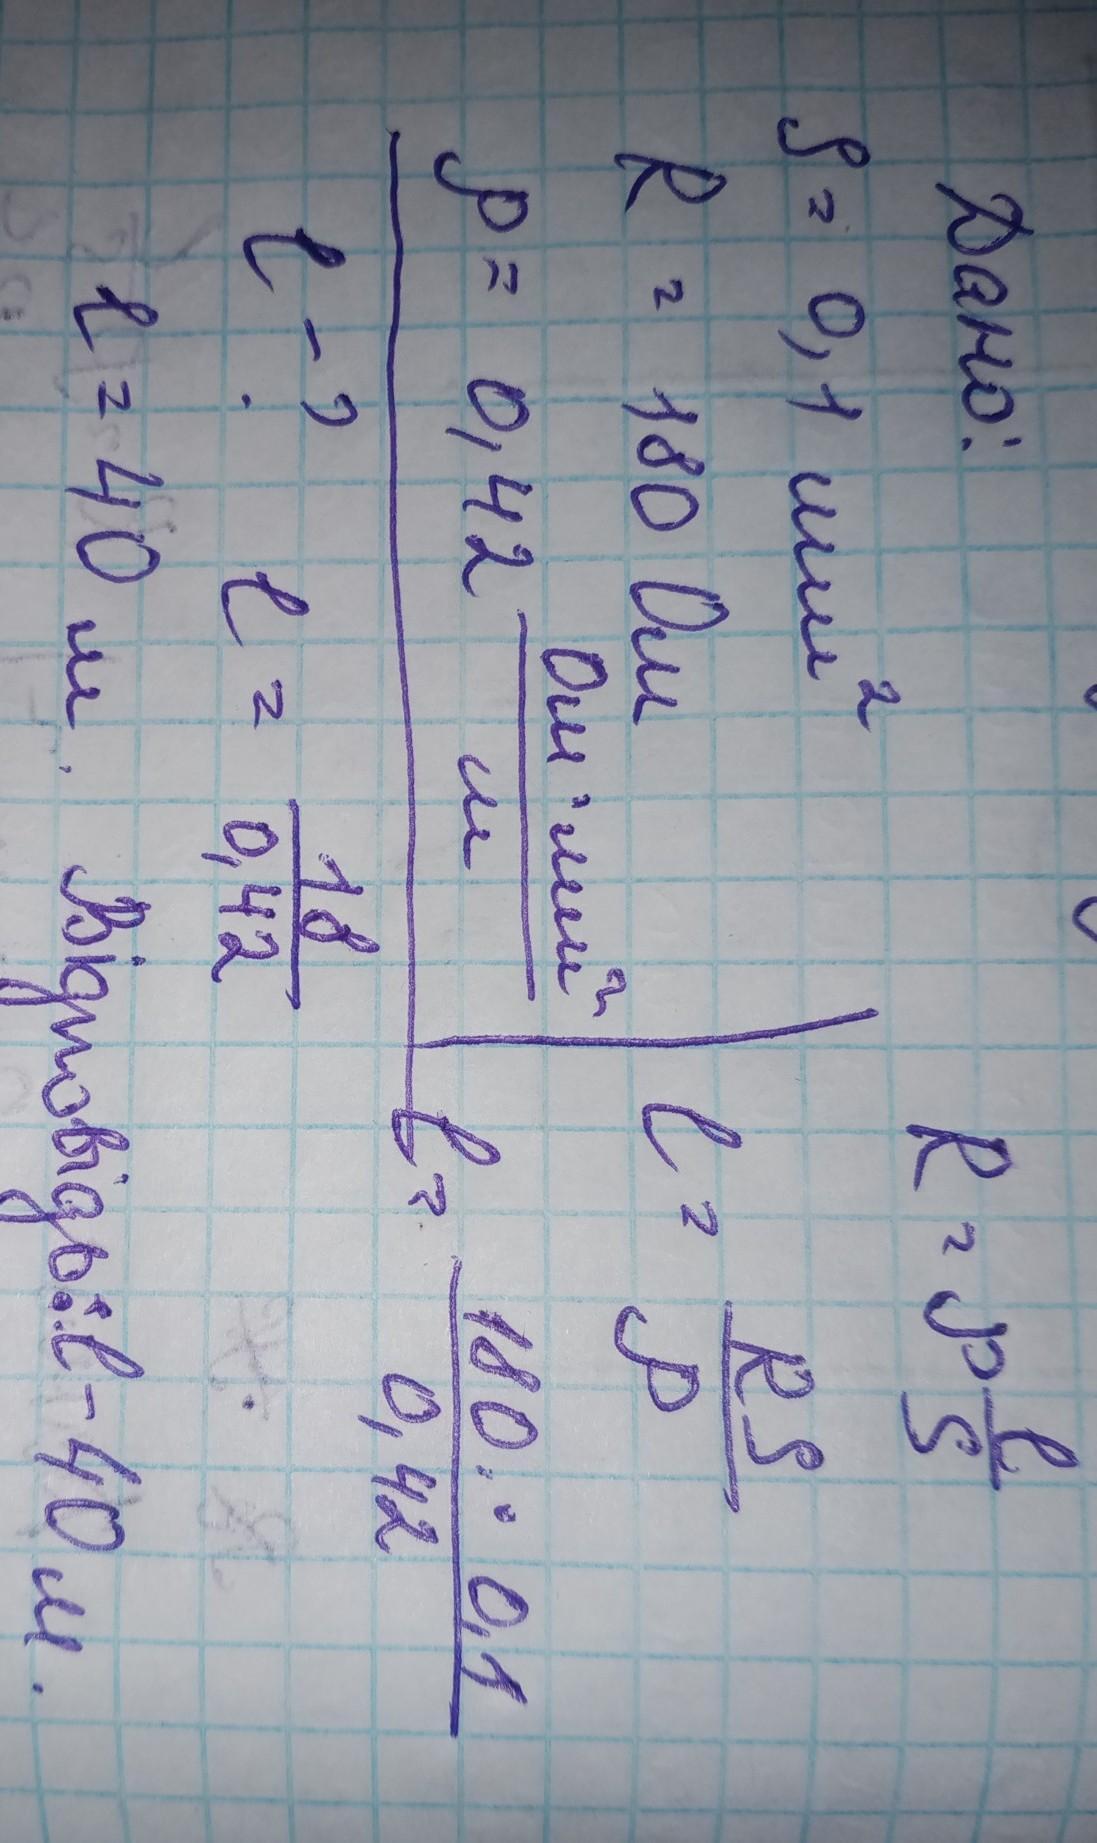 Дано:
S = 0,1 мм²
R = 180 Ом
ρ = 0,42 Ом·мм²/м
l - ?
R = ρ l/S
l = RS/ρ
l = 180 · 0,1/0,42
l = 18/0,42
l = 40 м. Відповідь: l - 40 м.